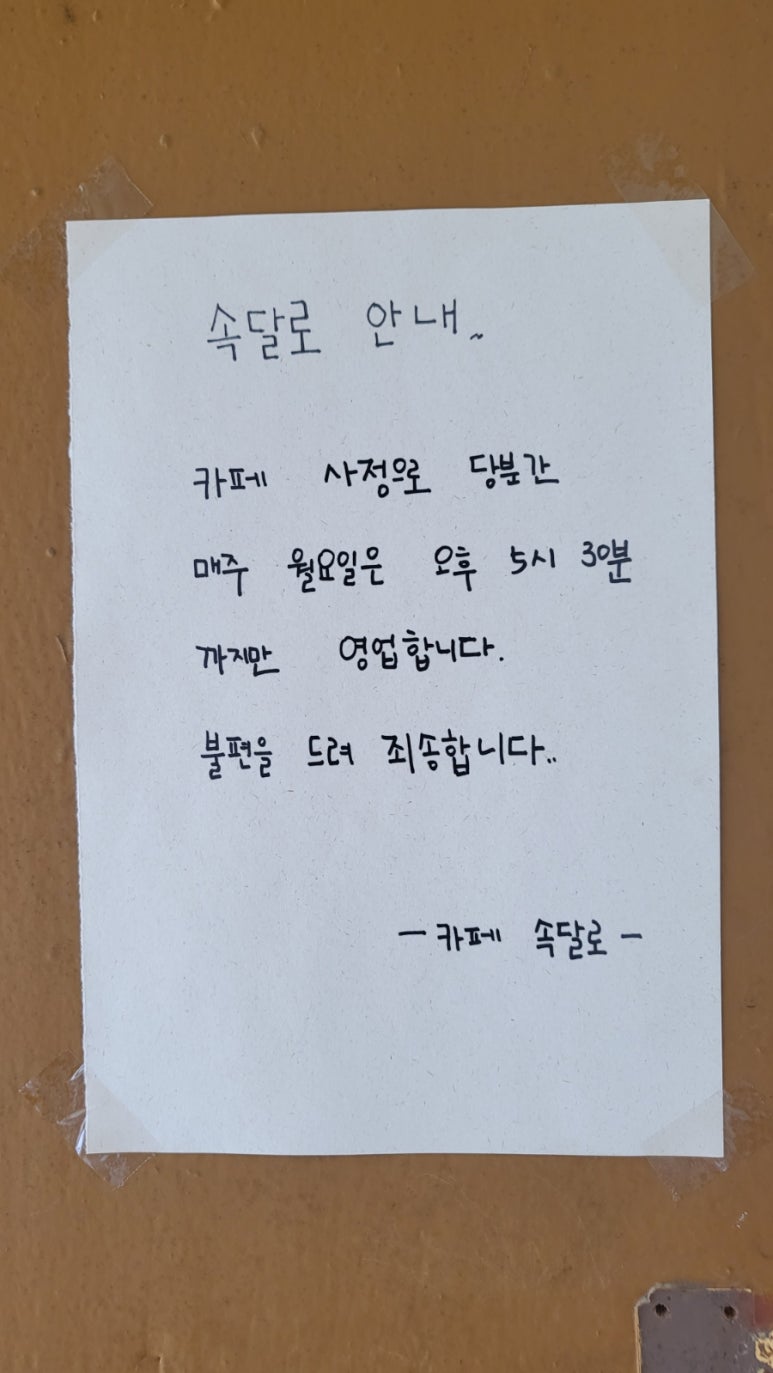 속달로 안내~
카페 사정으로 당분간
매주 월요일은 오후 5시 30분
까지만 영업합니다.
불편을 드려 죄송합니다..
- 카페 속달로 -